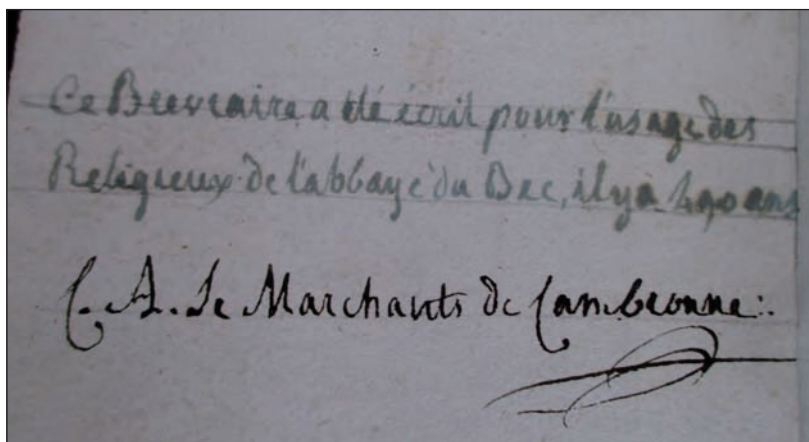 Ce Breviaire a été écrit pour l'usage des
Religieux de l'abbaye du Bec, il y a 490 ans
C. A. Le Marchants de Cambronne :.